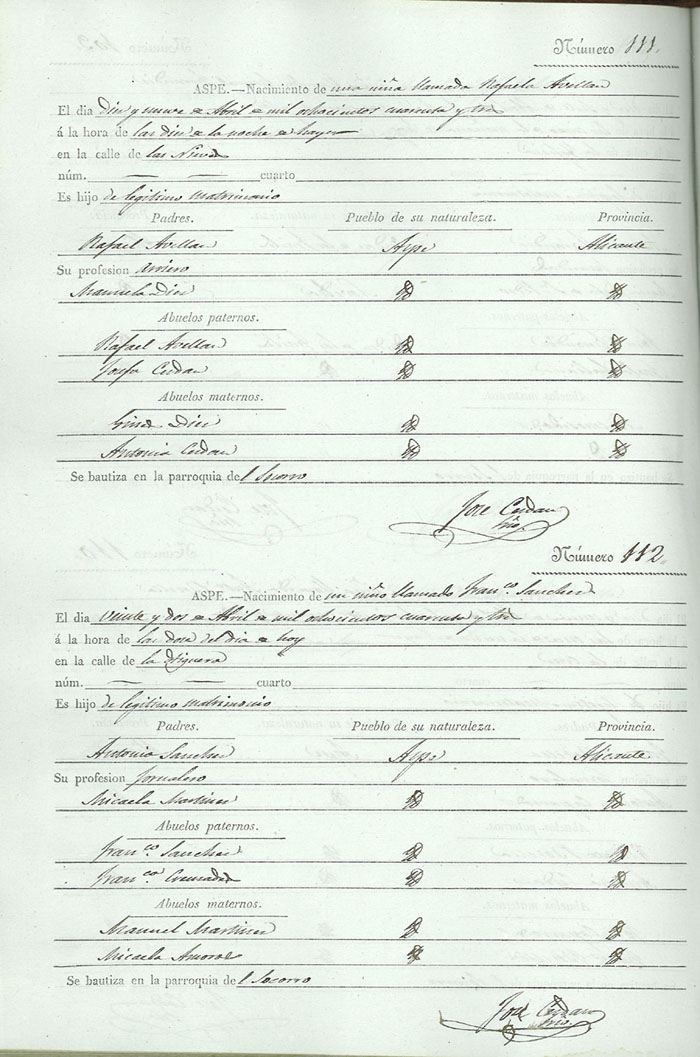 Número 111.
ASPE.—Nacimiento de una niña llamada Rafaela Avellan
El dia Diez y nueve de Abril de mil ochocientos cuarenta y tres
á la hora de las diez de la noche de hayer
en la calle de las Nieves
núm. — — cuarto
Es hijo de legitimo matrimonio
Padres. Pueblo de su naturaleza. Provincia.
Rafael Avellan Aspe Alicante
Su profesion arriero
Manuela Diez
Abuelos paternos.
Rafael Avellan
Josefa Cerdan
Abuelos maternos.
Gines Diez
Antonia Cerdan
Se bautiza en la parroquia del Socorro
Jose Cerdan
Srio.
Número 112.
ASPE.—Nacimiento de un niño llamado Franco. Sanchez
El dia veinte y dos de Abril de mil ochocientos cuarenta y tres
á la hora de las doce del dia de hoy
en la calle de la
núm. — — cuarto
Es hijo de legitimo matrimonio
Padres. Pueblo de su naturaleza. Provincia.
Antonio Sanchez Aspe Alicante
Su profesion Jornalero
Micaela Martinez
Abuelos paternos.
Franco. Sanchez
Franca. Cremades
Abuelos maternos.
Manuel Martinez
Micaela Amoros
Se bautiza en la parroquia del Socorro
José Cerdan
Srio.